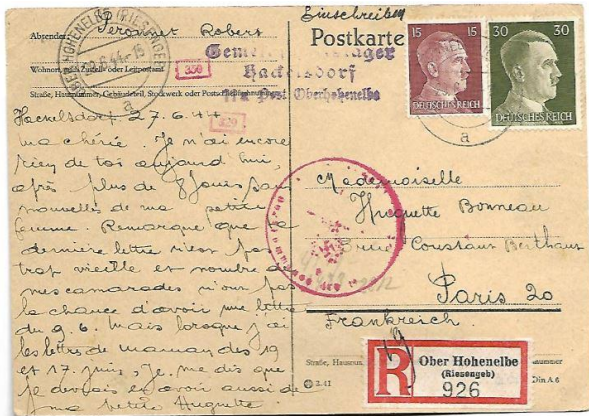 Einschreiben
Absender: Peronnet Robert
Postkarte
Wohnort, auch Zustell- oder Leitpostamt
Straße, Hausnummer, Gebäudeteil, Stockwerk oder Postschließfachnummer
HOHENELBE (RIESENGEB)
350
350
Hackelsdorf
Post Oberhohenelbe
15 15
DEUTSCHES REICH
30 30
DEUTSCHES REICH
a
Hackelsdorf 27.6.44
ma chérie. Je n'ai encore
rien de toi aujourd'hui,
après plus de 8 jours sans
nouvelles de ma petite
femme. Remarque que ta
dernière lettre n'est pas
trop vieille et nombre de
mes camarades n'ont pas
la chance d'avoir une lettre
du 9.6. Mais lorsque j'ai
les lettres de maman des 19
et 17 juin, je me dis que
je devrais en avoir aussi de
ma petite Huguette
Mademoiselle
Huguette Bonneau
Rue Constant Berthaut
Paris 20
Frankreich.
Straße, Hausnummer
3.41
Din A 6
R
Ober Hohenelbe
(Riesengeb)
926